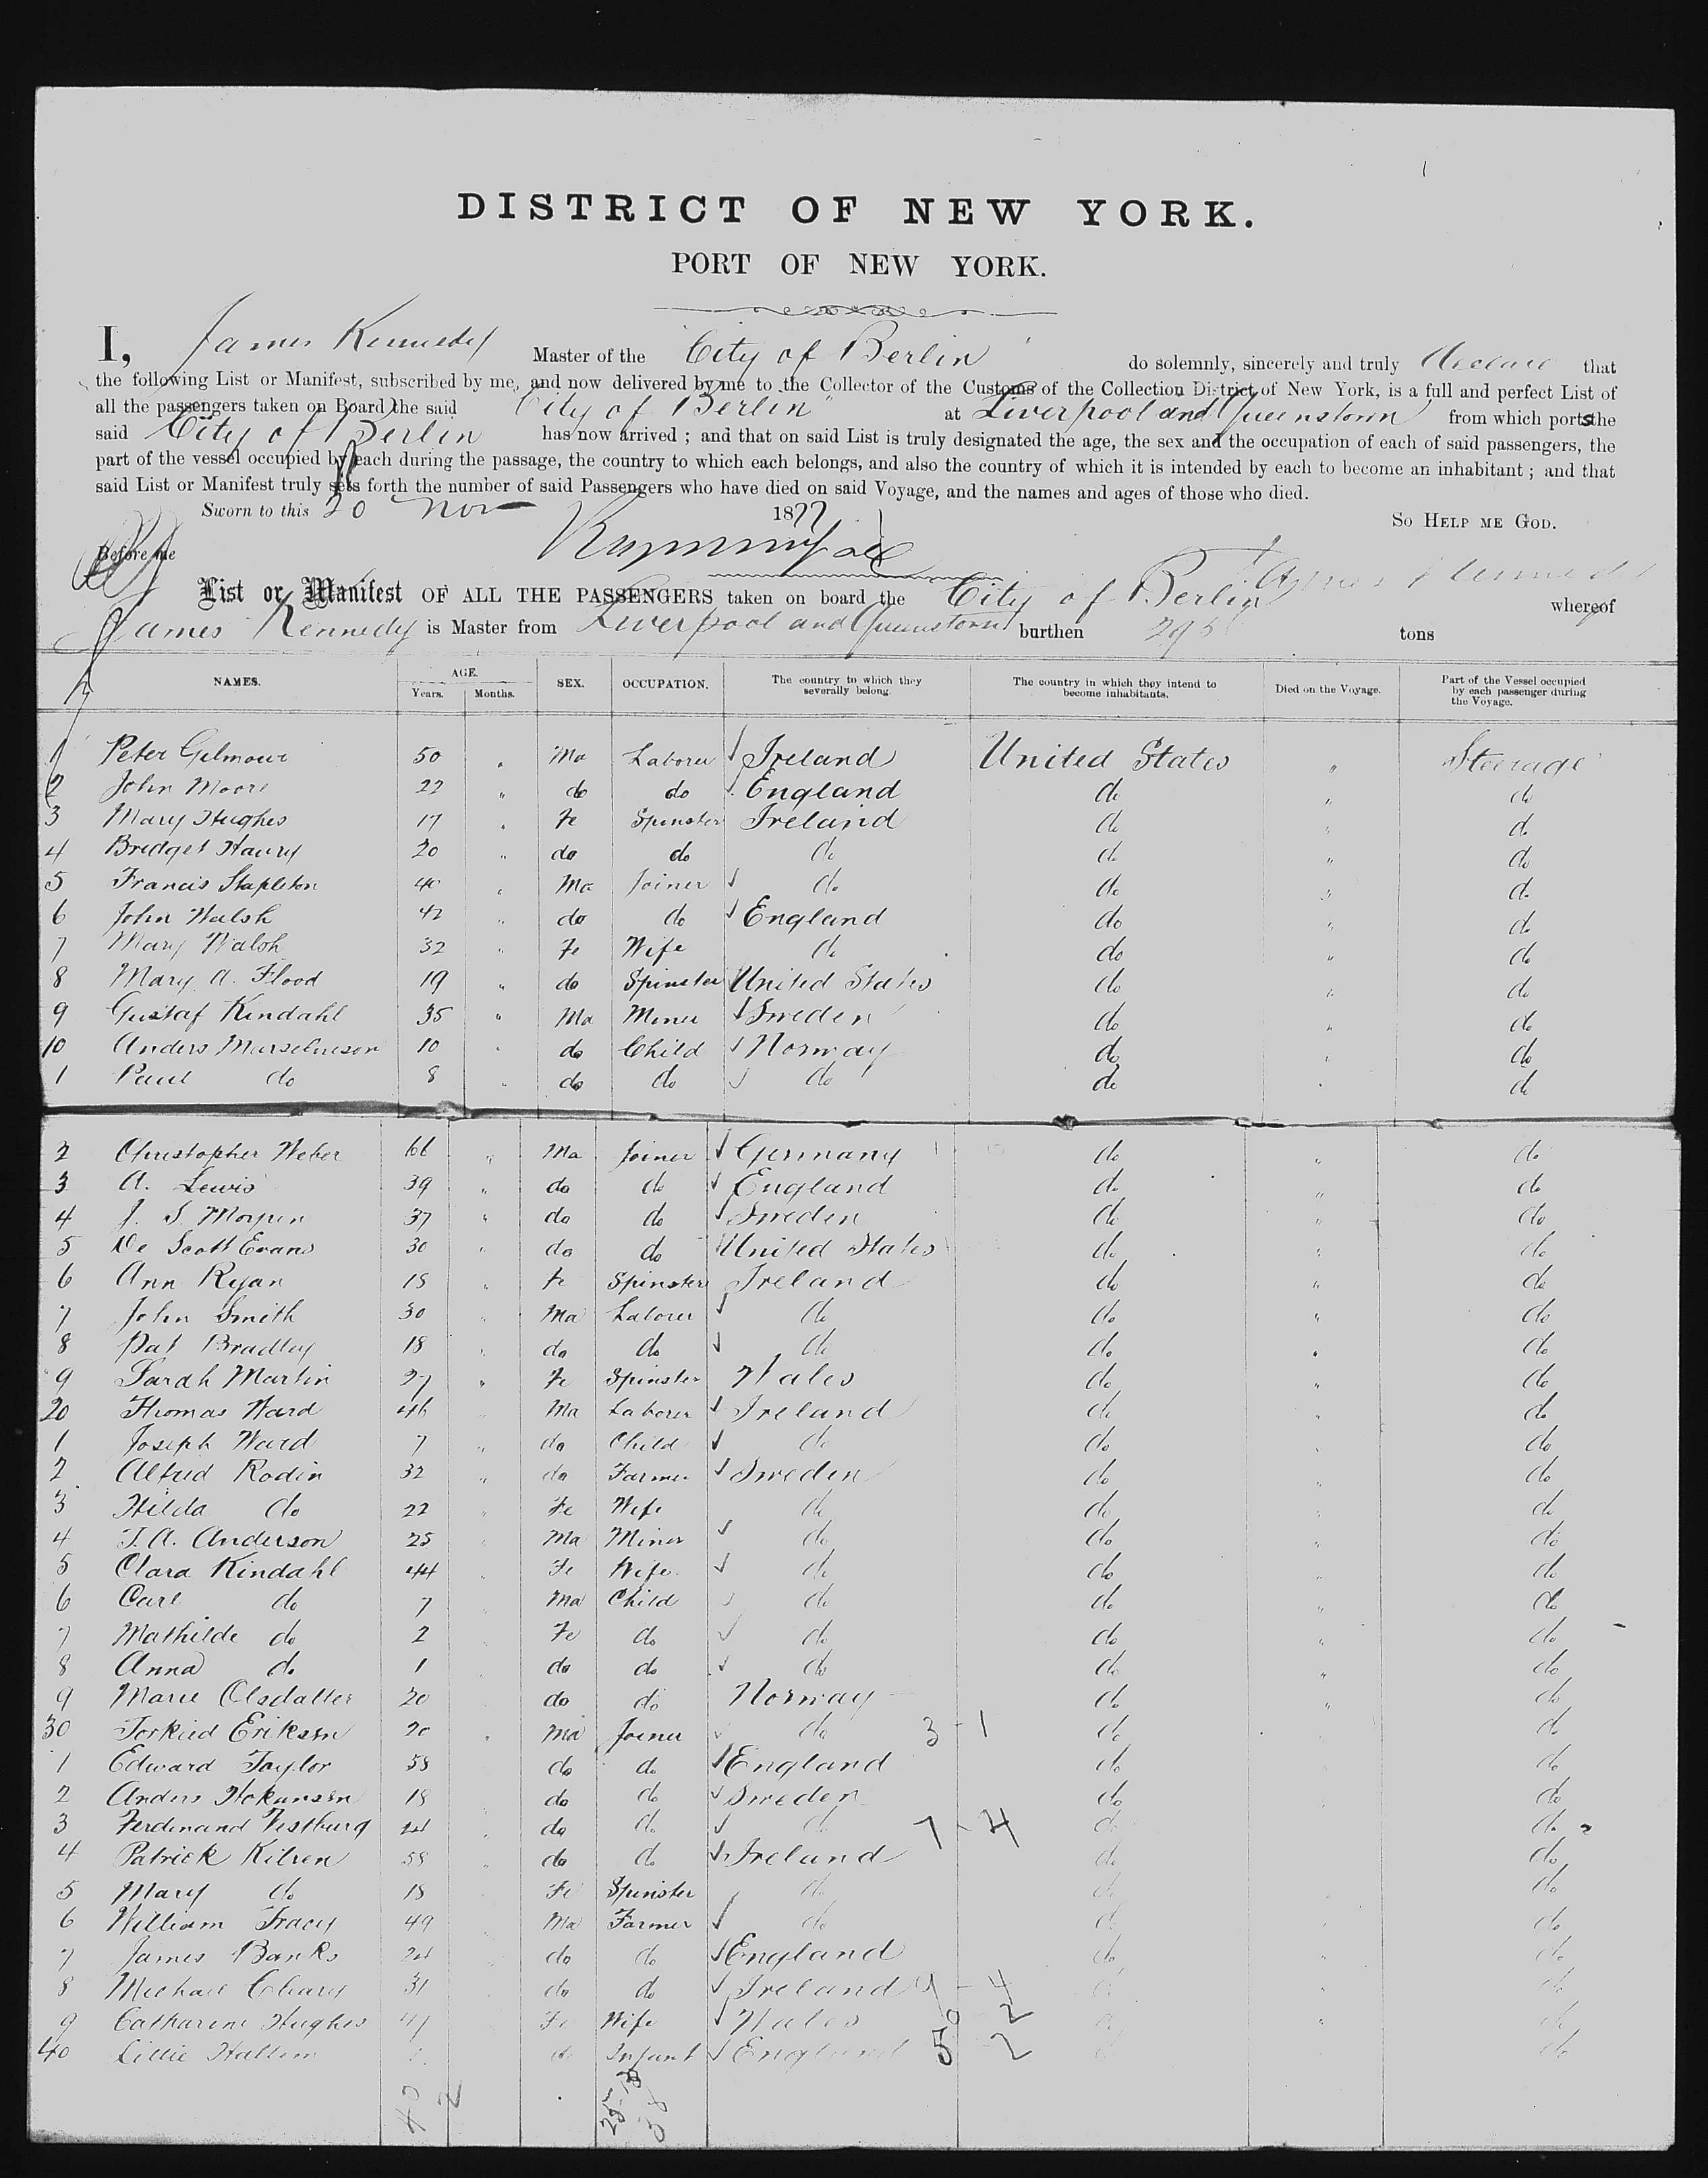 DISTRICT OF NEW YORK.
PORT OF NEW YORK.
I, James Kennedy Master of the "City of Berlin" do solemnly, sincerely and truly declare that
the following List or Manifest, subscribed by me, and now delivered by me to the Collector of the Customs of the Collection District of New York, is a full and perfect List of
all the passengers taken on Board the said "City of Berlin" at Liverpool and Queenstown from which ports the
said City of Berlin has now arrived ; and that on said List is truly designated the age, the sex and the occupation of each of said passengers, the
part of the vessel occupied by each during the passage, the country to which each belongs, and also the country of which it is intended by each to become an inhabitant ; and that
said List or Manifest truly sets forth the number of said Passengers who have died on said Voyage, and the names and ages of those who died.
Sworn to this 20 Nov 1877 So Help me God.
Before me James Kennedy
List or Manifest OF ALL THE PASSENGERS taken on board the City of Berlin whereof
James Kennedy is Master from Liverpool and Queenstown burthen tons
NAMES. AGE. Years. Months. SEX. OCCUPATION. The country to which they severally belong. The country in which they intend to become inhabitants. Died on the Voyage. Part of the Vessel occupied by each passenger during the Voyage.
1 Peter Gilmour 50 " Ma Laborer Ireland United States " Steerage
2 John Moore 22 " do do England do " do
3 Mary Hughes 17 " Fe Spinster Ireland do " do
4 Bridget 20 " do do do do " do
5 Francis Stapleton 40 " Ma Joiner do do " do
6 John Walsh 42 " do do England do " do
7 Mary Walsh 32 " Fe Wife do do " do
8 Mary A. Flood 19 " do Spinster United States do " do
9 Gustaf Kindahl 35 " Ma Miner Sweden do " do
10 Anders 10 " do Child Norway do " do
1 Paul do 8 " do do do do " do
2 Christopher Weber 66 " Ma Joiner Germany do " do
3 A. Lewis 39 " do do England do " do
4 J. S. 37 " do do Sweden do " do
5 De Scott Evans 30 " do do United States do " do
6 Ann Ryan 18 " Fe Spinster Ireland do " do
7 John Smith 30 " Ma Laborer do do " do
8 Pat Bradley 18 " do do do do " do
9 Sarah Martin 27 " Fe Spinster Wales do " do
20 Thomas Ward 46 " Ma Laborer Ireland do " do
1 Joseph Ward 7 " do Child do do " do
2 Alfred Rodin 32 " do Farmer Sweden do " do
3 Hilda do 22 " Fe Wife do do " do
4 J. A. Anderson 25 " Ma Miner do do " do
5 Clara Kindahl 44 " Fe Wife do do " do
6 Carl do 7 " Ma Child do do " do
7 Mathilde do 2 " Fe do do do " do
8 Anna do 1 " do do do do " do
9 Marie Olsdatter 20 do do Norway do " do
30 Eriksen 20 " Ma Joiner do 3 - 1 do do
1 Edward Taylor 58 do do England do do
2 Anders Hokansen 18 do do Sweden do do
3 Ferdinand 24 " do do do 7 - 4 do do
4 Patrick 58 " do do Ireland do do
5 Mary do 18 Fe Spinster do do do
6 William Tracy 49 Ma Farmer do do do
7 James Banks 24 do do England do do
8 Michael Cleary 31 do do Ireland 9 - 4 do do
9 Catharine Hughes 41 Fe Wife Wales 0 2 do do
40 Lillie Hallem do Infant England 5 2 do do